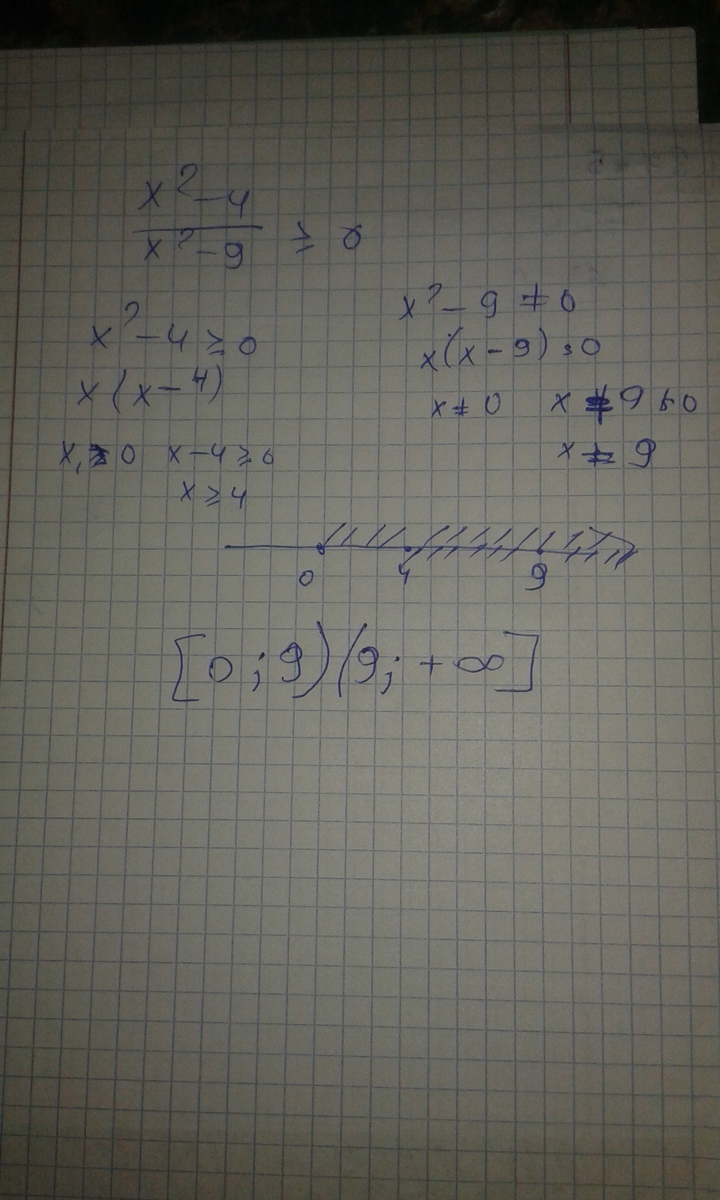 x² - 4
x² - 9 ≥ 0
x² - 4 ≥ 0
x(x - 4)
x₁ ≥ 0 x - 4 ≥ 0
x ≥ 4
x² - 9 ≠ 0
x(x - 9) ≠ 0
x ≠ 0 x ≠ 9 ≠ 0
x ≠ 9
0 4 9
[0; 9)(9; +∞]